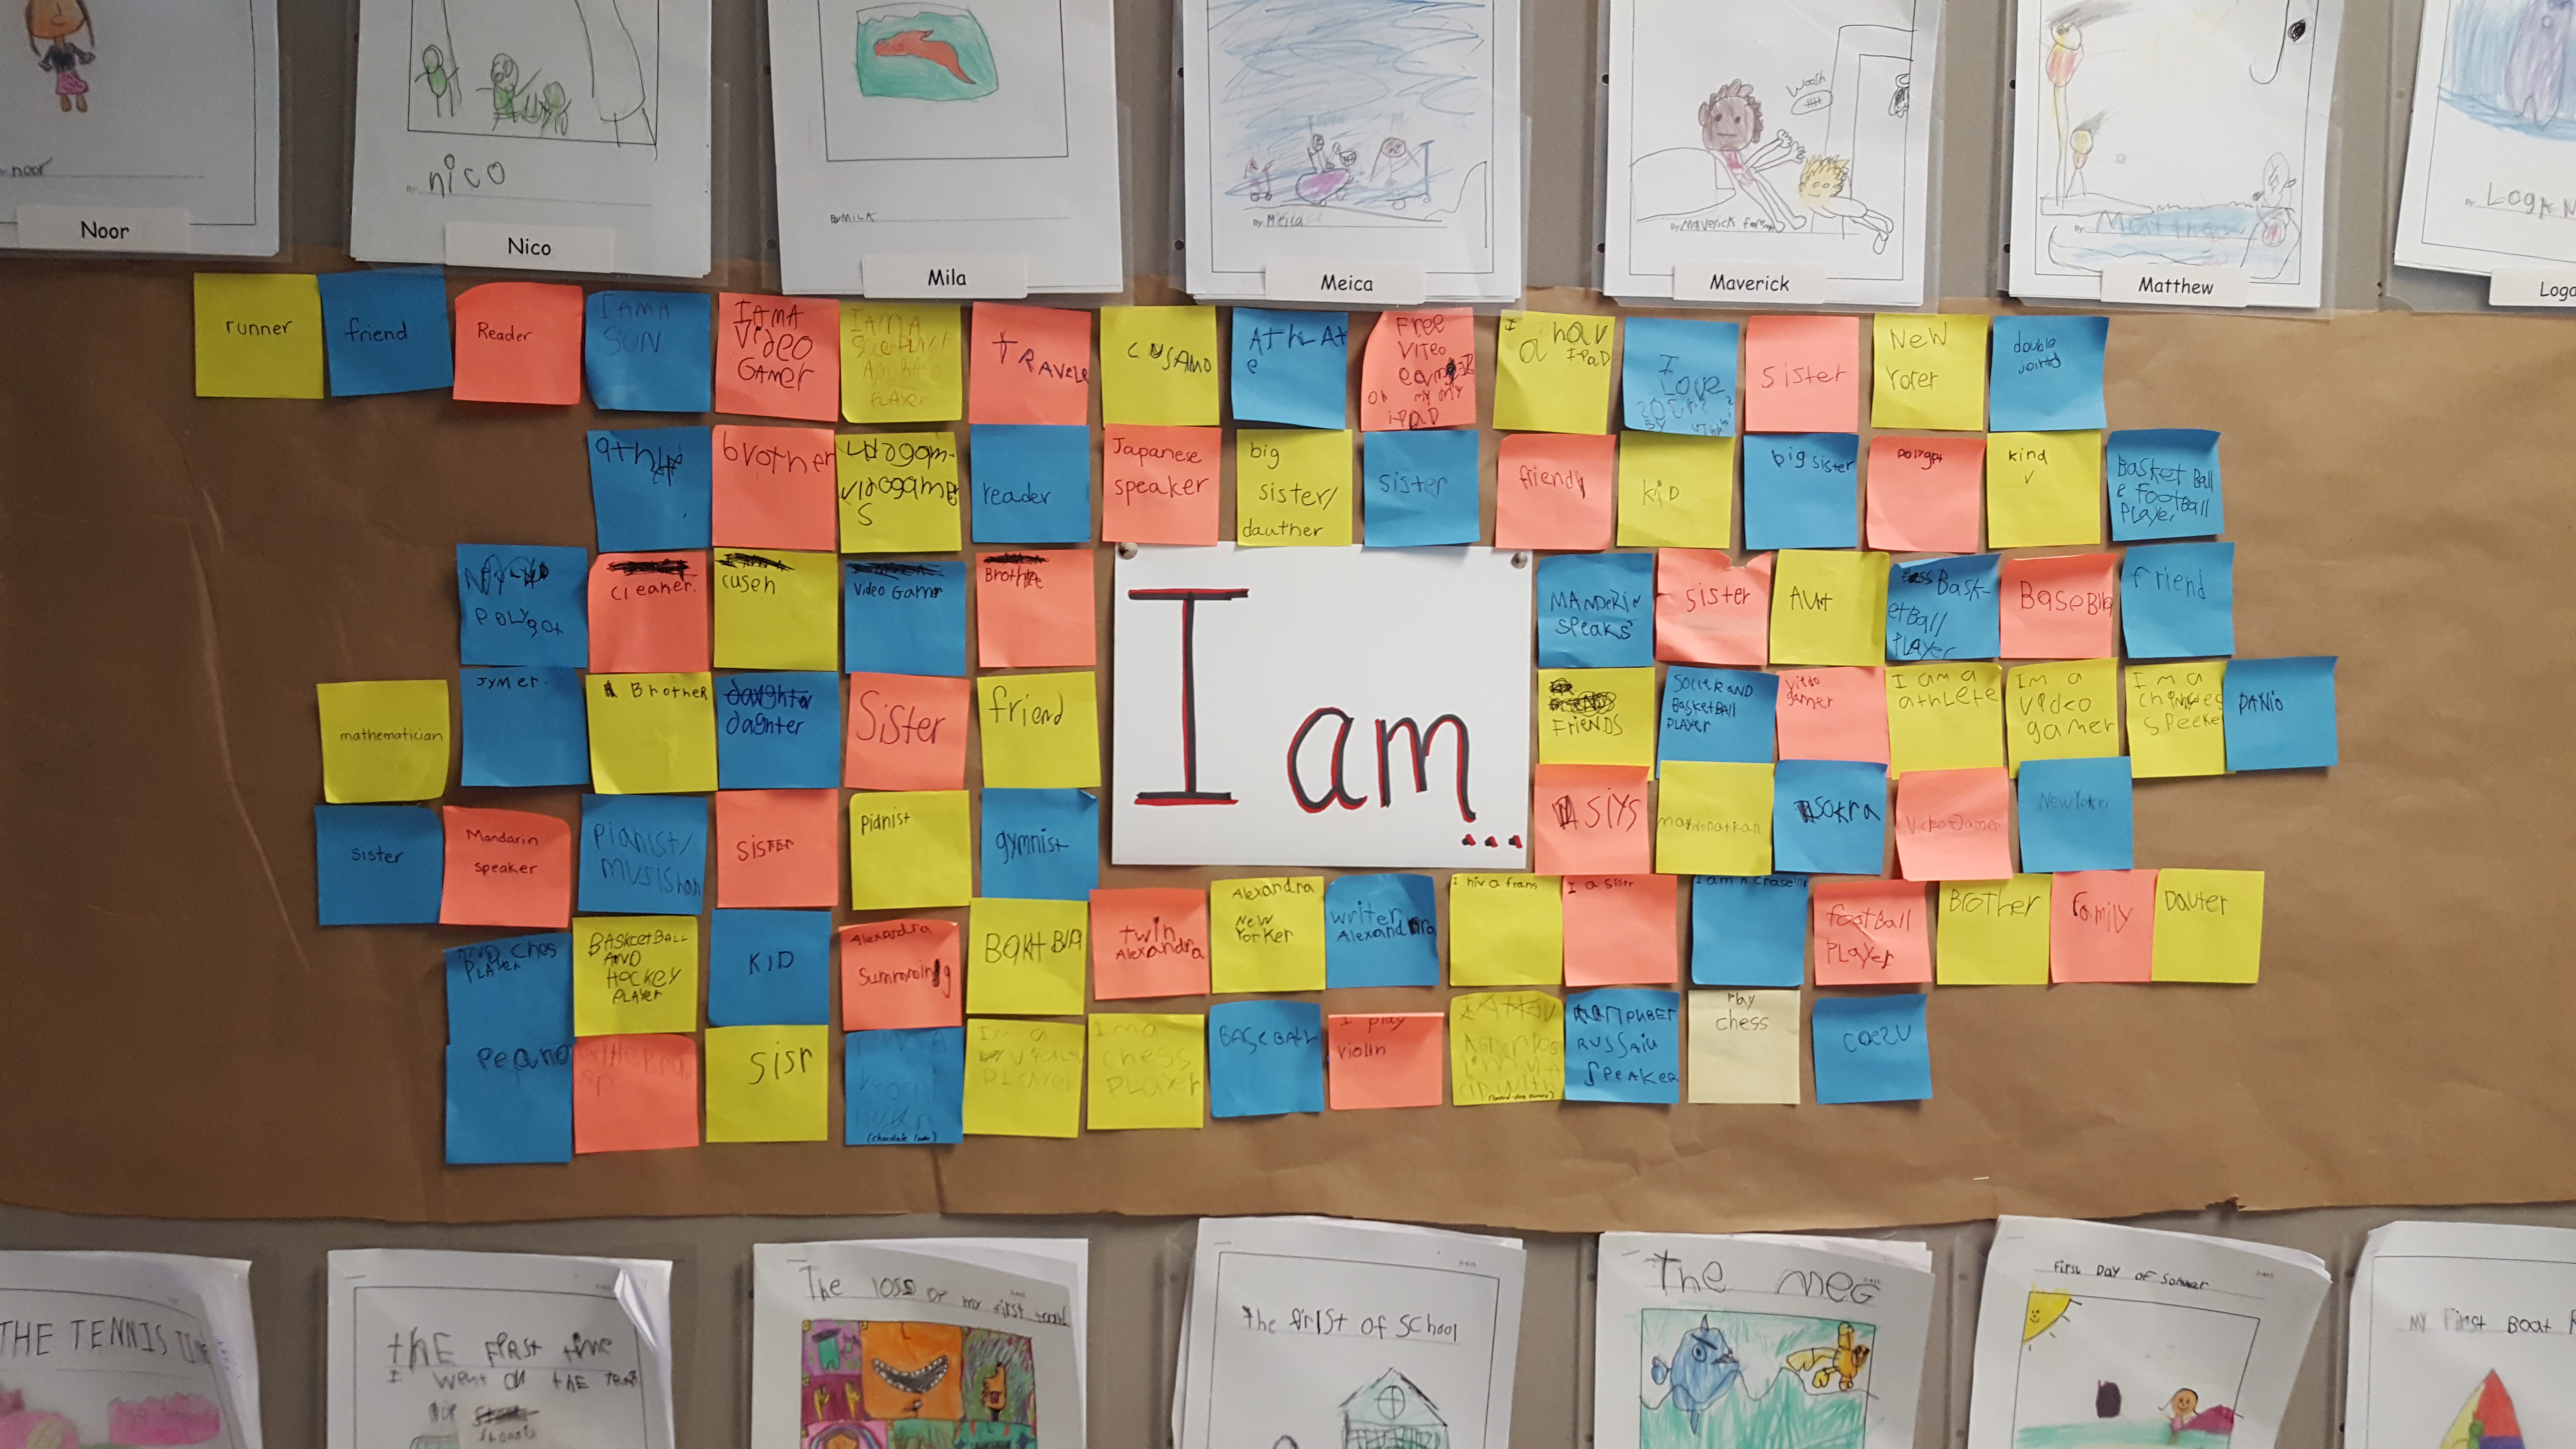 noor
Noor
nico
Nico
By: MILA
Mila
By: Meica
Meica
Woosh
By: Maverick
Maverick
By: Matthew
Matthew
By: LOGAN
Loga
runner
friend
Reader
I AM A
SON
I AM A
Video
GAMer
I AM A
PLAYER
TRAVELR
CUSAMO
AthLAt
e
Free
VITEO
ON MY MY
iPAD
I
a hav
IPAD
I
Love
BY
sister
New
Yorer
double
jointd
brother
vidogame
S
reader
Japanese
speaker
big
sister/
dauther
sister
friend
kiD
big sister
polygot
kind
Basket Ball
e footBall
Player
POLYgot
Cleaner.
cusen
Video Gamr
Brothre
MANDERIN
speaks
sister
AUnt
Bask-
etBall
PLAYer
BaseBla
friend
mathematician
Jymer.
A Brother
daughter
dagnter
Sister
friend
I am...
FrieNDS
SOCCER AND
BasketBall
PLAYER
vitdo
gamer
I am a
athLete
Im a
video
gamer
Im a
chingeg
speeker
PANIO
sister
Mandarin
speaker
pianist/
musishan
SISTER
pianist
gymnist
SiYS
sokra
VideoGamer
New Yoker
AND Ches
PLAYER
BASkcetBALL
AND
HOCKEY
PLAYER
KID
Alexandra
Summoning
BaKt Bla
twin
Alexandra
Alexandra
New
Yorker
writer
Alexandra
I hiv a frans
I a Sistr
I am A crase!!!
football
PLayer
BrotHer
family
Dauter
Peano
sisr
I AM A
(chocolate lover)
Im a
PLAYER
Im a
chess
PLayer
BASeBALL
I play
violin
RUSSAIU
SPEAKER
Play
chess
coezu
THE TENNIS
thE First time
I went on thE
The loss of my first tooth
the firist of school
The MEG
first DAY of Sommer
MY First Boat